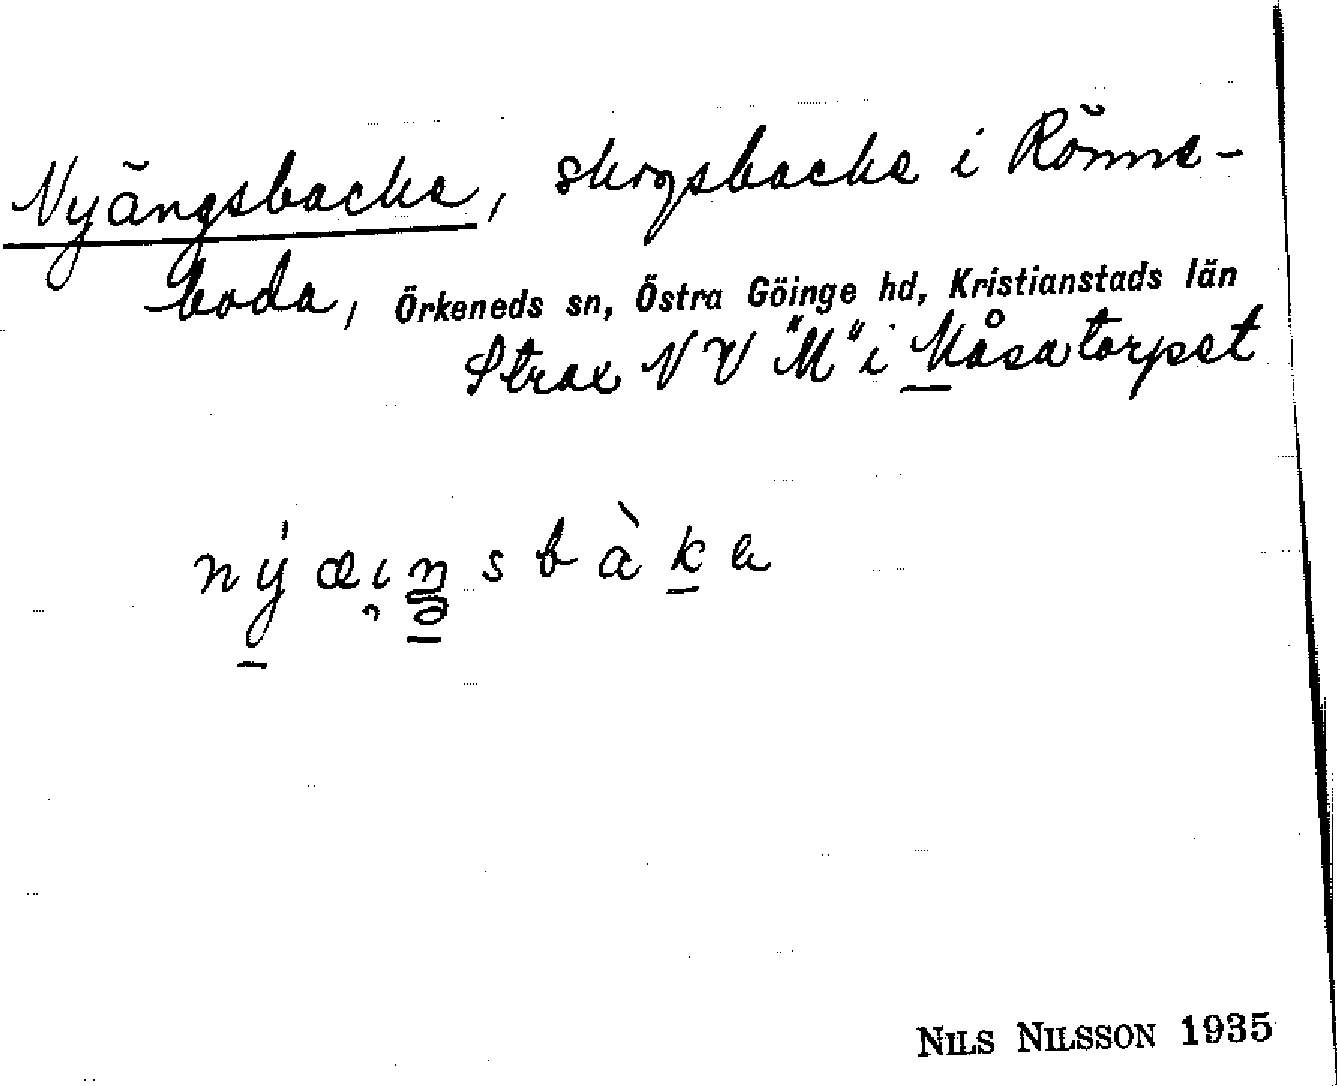 Nyängsbacke, skogsbacke i Rönne-
boda, Örkeneds sn, Östra Göinge hd, Kristianstads län
Strax NV "M" i Måsatorpet
nýæi̯ŋsbàka
NILS NILSSON 1935